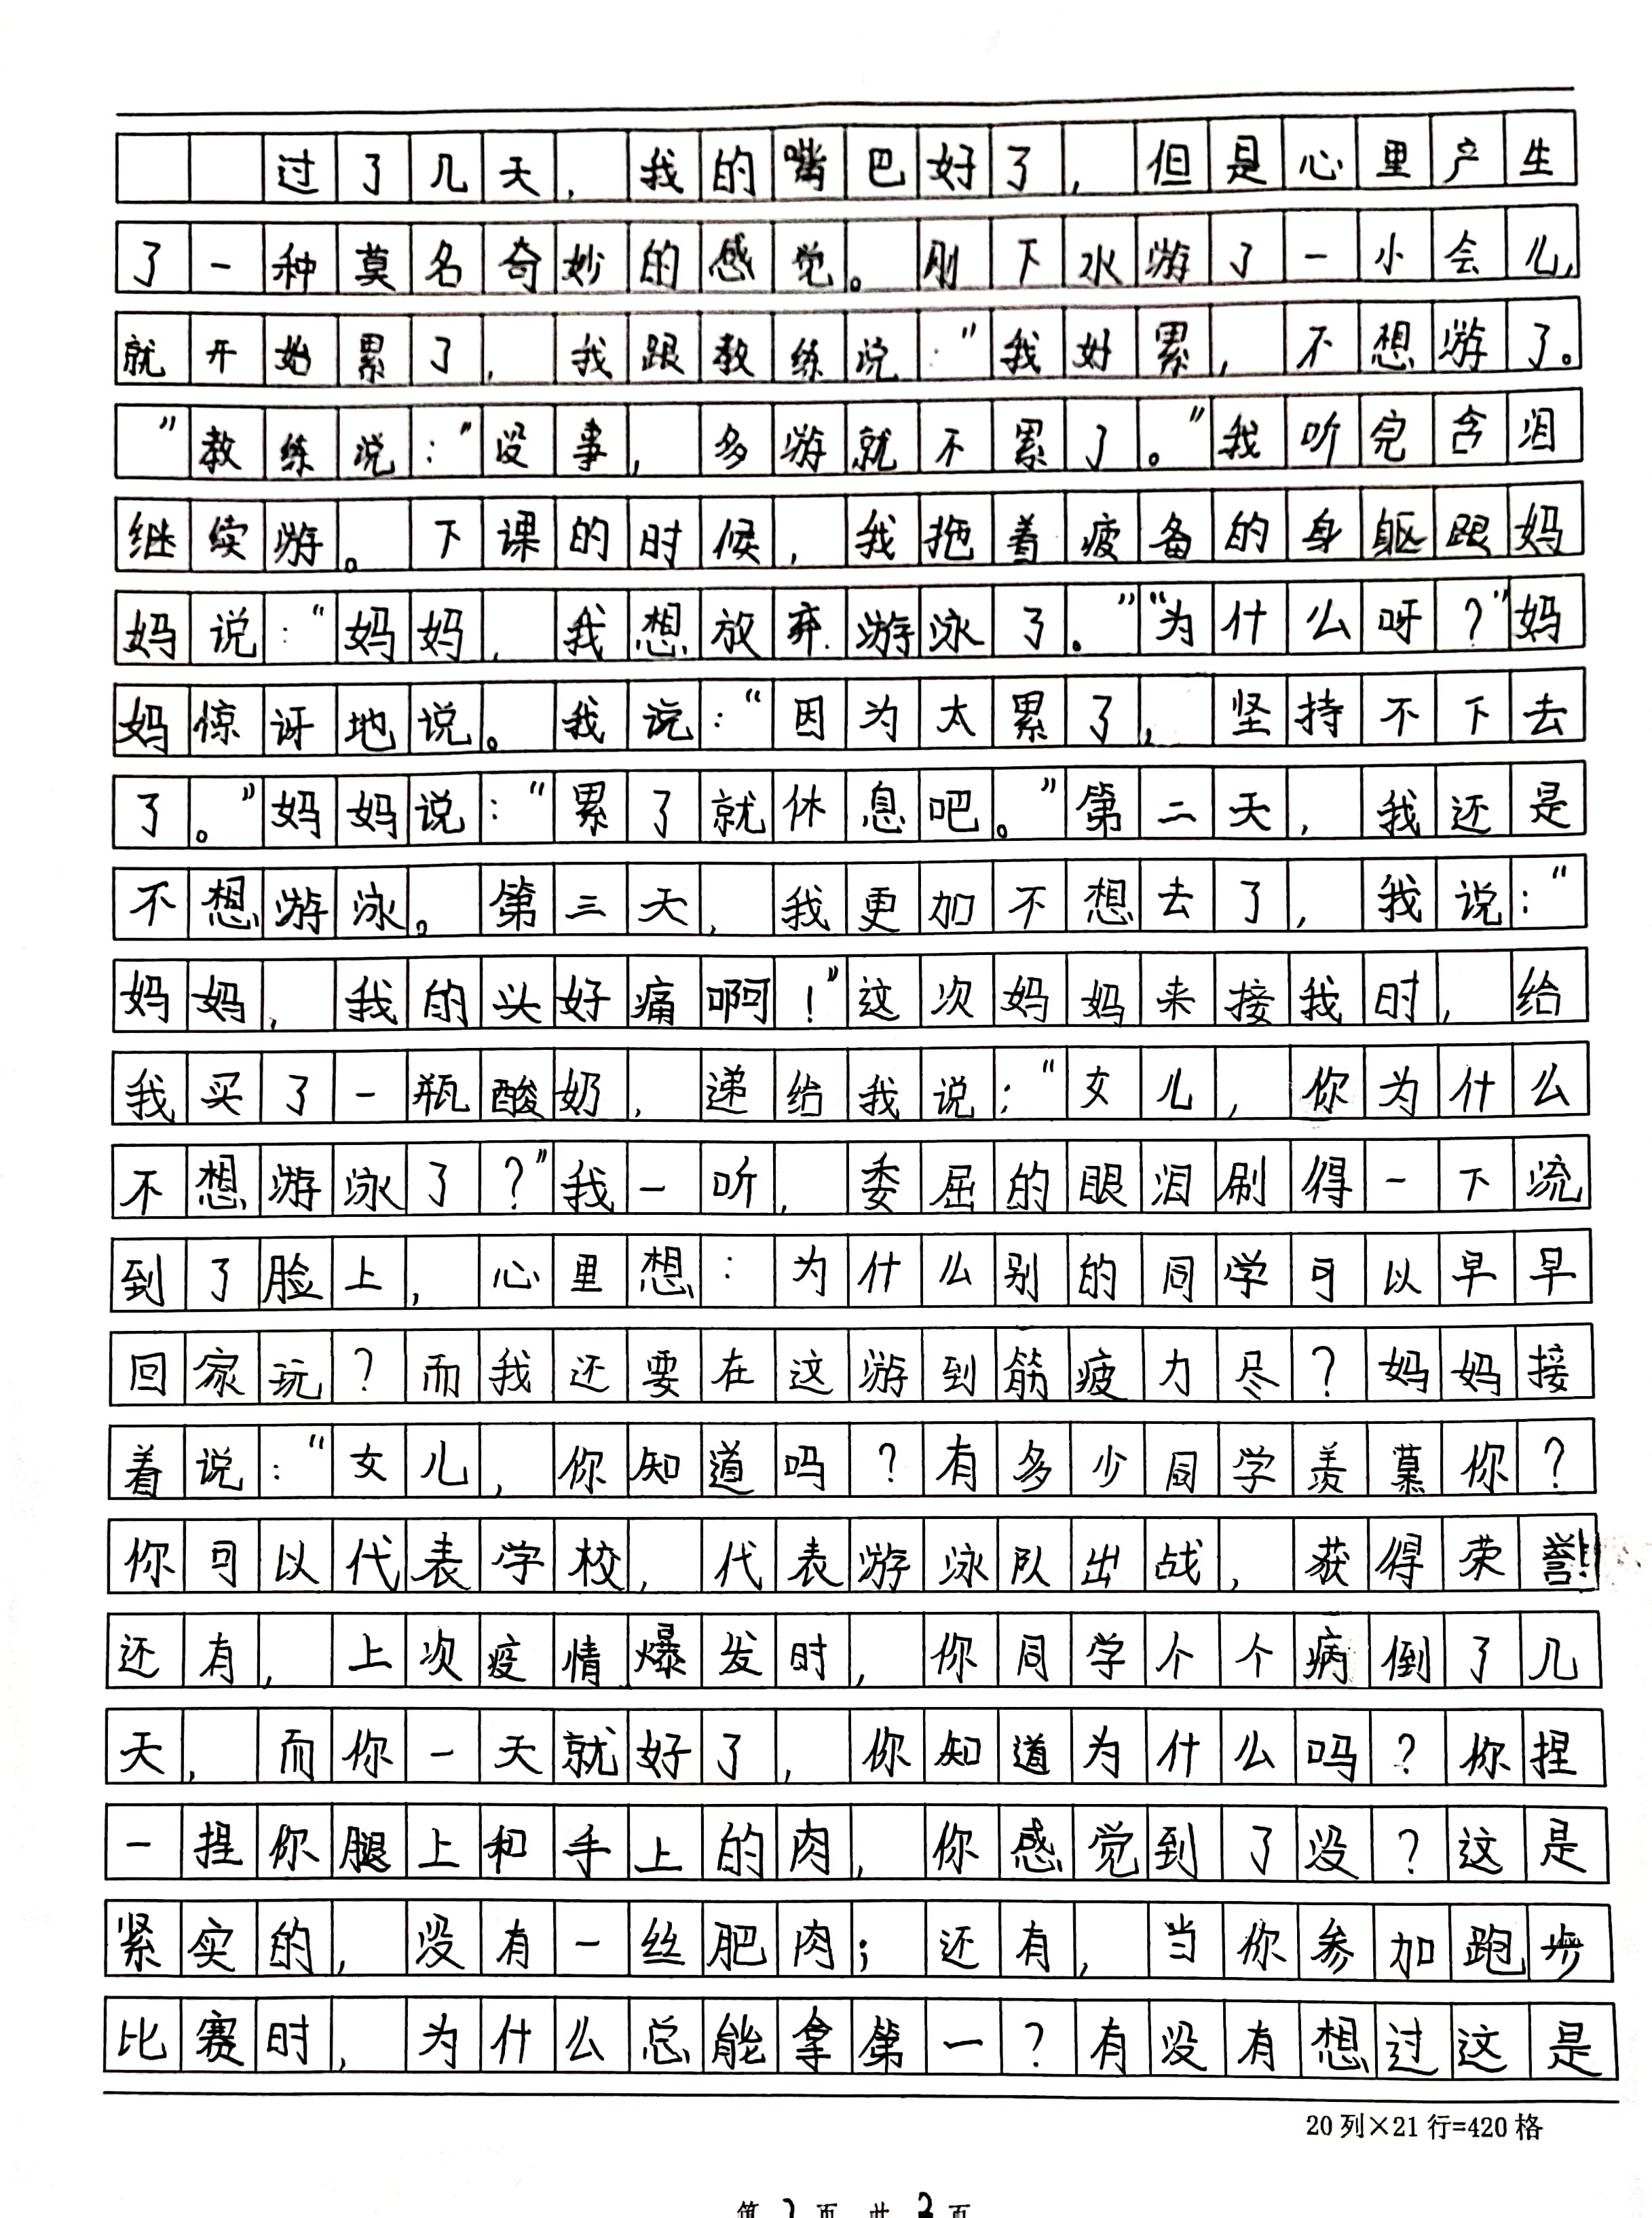 过了几天，我的嘴巴好了，但是心里产生
了一种莫名奇妙的感觉。刚下水游了一小会儿，
就开始累了，我跟教练说：“我好累，不想游了。
”教练说：”没事，多游就不累了。”我听完含泪
继续游。下课的时候，我拖着疲备的身躯跟妈
妈说：“妈妈，我想放弃游泳了。”“为什么呀？”妈
妈惊讶地说。我说：“因为太累了，坚持不下去
了。”妈妈说：“累了就休息吧。”第二天，我还是
不想游泳。第三天，我更加不想去了，我说：“
妈妈，我的头好痛啊！”这次妈妈来接我时，给
我买了一瓶酸奶，递给我说：“女儿，你为什么
不想游泳了？”我一听，委屈的眼泪刷得一下流
到了脸上，心里想：为什么别的同学可以早早
回家玩？而我还要在这游到筋疲力尽？妈妈接
着说：“女儿，你知道吗？有多少同学羡慕你？
你可以代表学校，代表游泳队出战，获得荣誉！
还有，上次疫情爆发时，你同学个个病倒了几
天，而你一天就好了，你知道为什么吗？你捏
一捏你腿上和手上的肉，你感觉到了没？这是
紧实的，没有一丝肥肉；还有，当你参加跑步
比赛时，为什么总能拿第一？有没有想过这是
20列×21行=420格
第2页 共3页